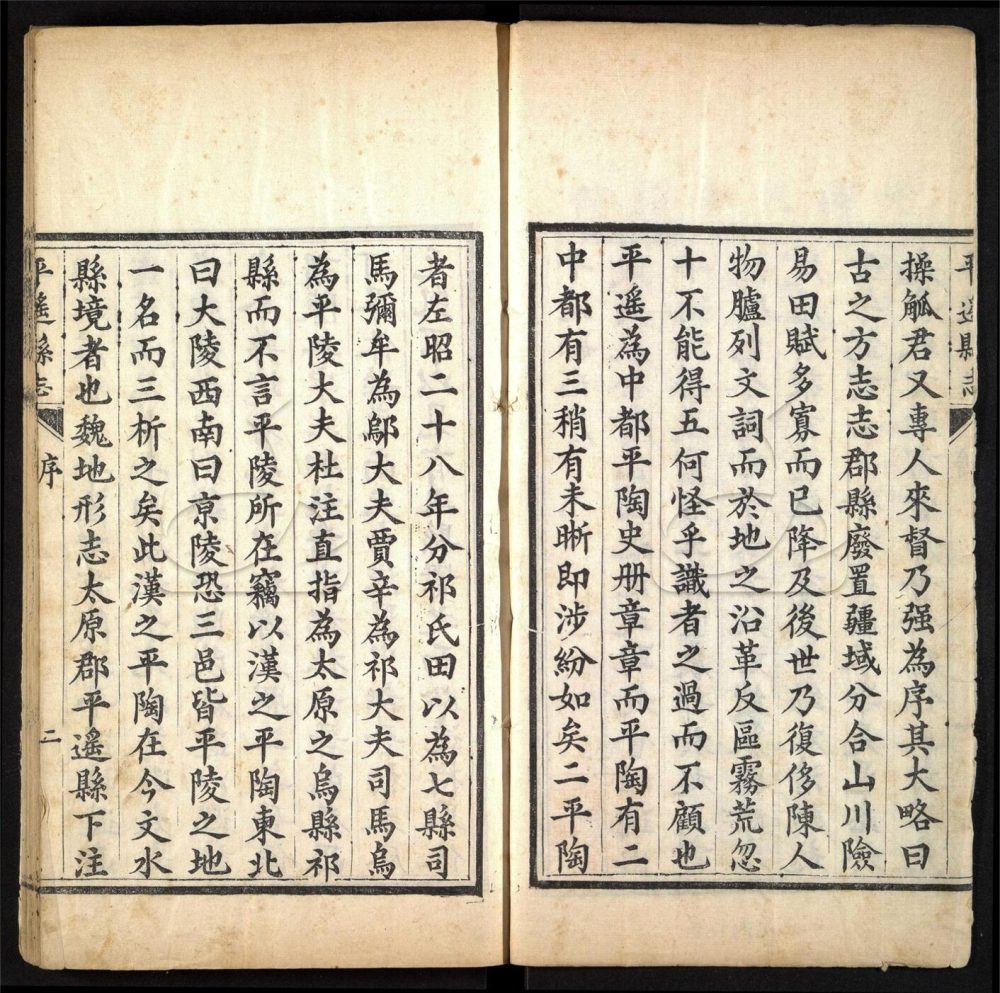 平遙縣志
操觚君又專人來督乃强為序其大略曰
古之方志志郡縣廢置疆域分合山川險
易田賦多寡而已降及後世乃復侈陳人
物臚列文詞而於地之沿革反區霧荒忽
十不能得五何怪乎識者之過而不顧也
平遥為中都平陶史册章章而平陶有二
中都有三稍有未晰即涉紛如矣二平陶
者左昭二十八年分祁氏田以為七縣司
馬彌牟為鄔大夫賈辛為祁大夫司馬烏
為平陵大夫杜注直指為太原之烏縣祁
縣而不言平陵所在竊以漢之平陶東北
曰大陵西南曰亰陵恐三邑皆平陵之地
一名而三析之矣此漢之平陶在今文水
縣境者也魏地形志太原郡平遥縣下注
平遥縣志
序
二